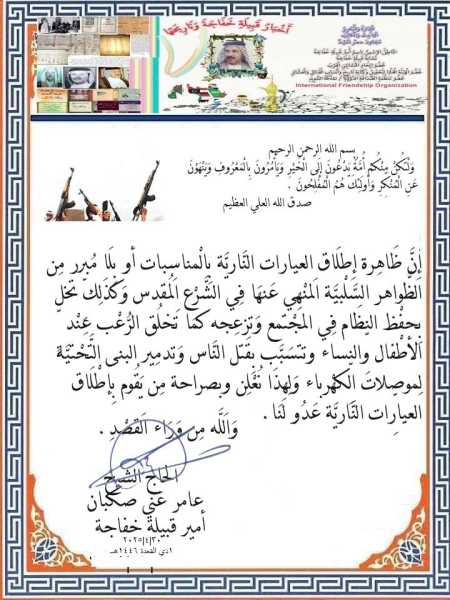 أخبار قبيلة خفاجة وتاريخها
International Friendship Organization
بسم الله الرحمن الرحيم
وَلْتَكُنْ مِنْكُمْ أُمَّةٌ يَدْعُونَ إِلَى الْخَيْرِ وَيَأْمُرُونَ بِالْمَعْرُوفِ وَيَنْهَوْنَ
عَنِ الْمُنْكَرِ وَأُولَٰئِكَ هُمُ الْمُفْلِحُونَ .
صدق الله العلي العظيم
إنَّ ظَاهِرة إطلَاق العيارات النَّاريَّة بِالْمناسبات أو بلَا مُبرر مِن
الظواهر السَّلبيَّة المَنْهي عَنهَا فِي الشَّرْع المُقدس وَكَذَلِكَ تخل
بِحفْظ النظام فِي المجْتمع وَتزعجه كمَا تَخْلق الرُّعْب عِنْد
الْأَطْفال والنساء وتتسَبَّب بقَتْل النَّاس وَتدمِير البنى التَّحْتيَّة
لِموصِلَات الكَهْرباء وَلِهذَا نُعْلِن وبصراحة مِن يَقُوم بِإطْلَاق
العيارات النَّاريَّة عَدُو لَنا .
وَاللَّه مِن وَرَاء القَصْد .
الحاج الشيخ
عامر غني صكبان
أمير قبيلة خفاجة
٢٠٢٥/٤/٣٠
١ ذي القعدة ١٤٤٦هـ